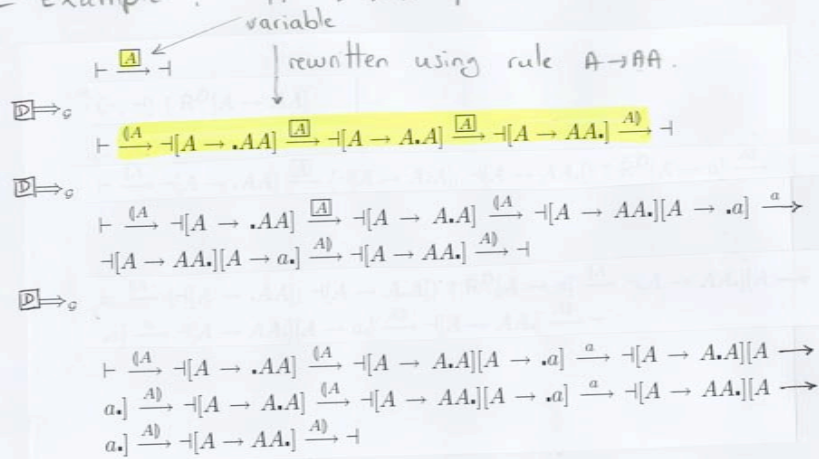 Example :
variable
⊢ —A→ ⊣
rewritten using rule A→AA.
D ⟹G
⊢ —⦅A→ ⊣[A → .AA] —A→ ⊣[A → A.A] —A→ ⊣[A → AA.] —A⦆→ ⊣
D ⟹G
⊢ —⦅A→ ⊣[A → .AA] —A→ ⊣[A → A.A] —⦅A→ ⊣[A → AA.][A → .a] —a→
⊣[A → AA.][A → a.] —A⦆→ ⊣[A → AA.] —A⦆→ ⊣
D ⟹G
⊢ —⦅A→ ⊣[A → .AA] —⦅A→ ⊣[A → A.A][A → .a] —a→ ⊣[A → A.A][A →
a.] —A⦆→ ⊣[A → A.A] —⦅A→ ⊣[A → AA.][A → .a] —a→ ⊣[A → AA.][A →
a.] —A⦆→ ⊣[A → AA.] —A⦆→ ⊣